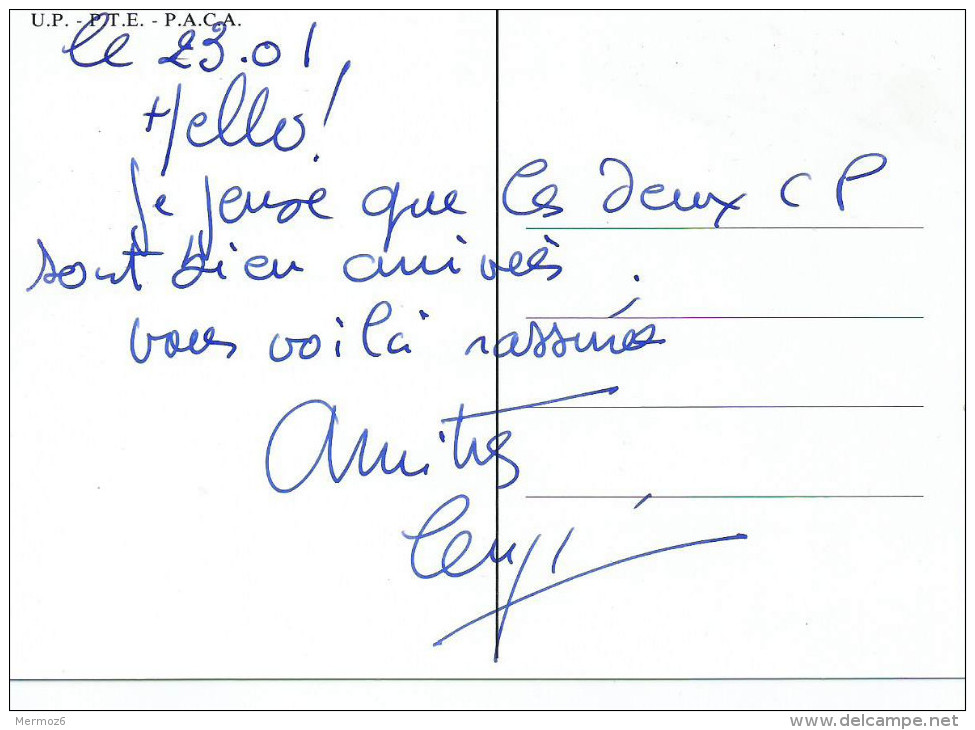 U.P. - P.T.E. - P.A.C.A.
le 23.01
Hello!
je pense que les deux CP
sont bien arrivées.
vous voilà rassurés
Amitiés
Mermoz6
www.delcampe.net